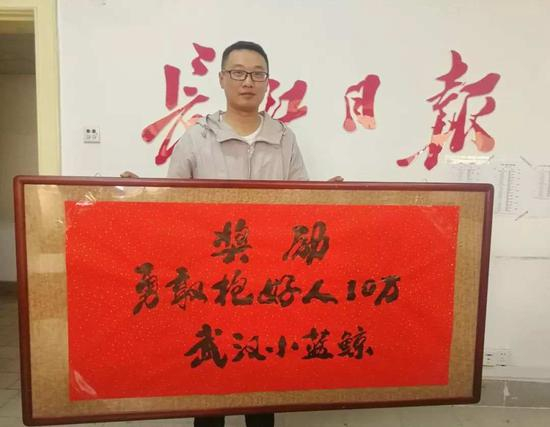 长江日报
奖励
勇敢抱好人10万
武汉小蓝鲸